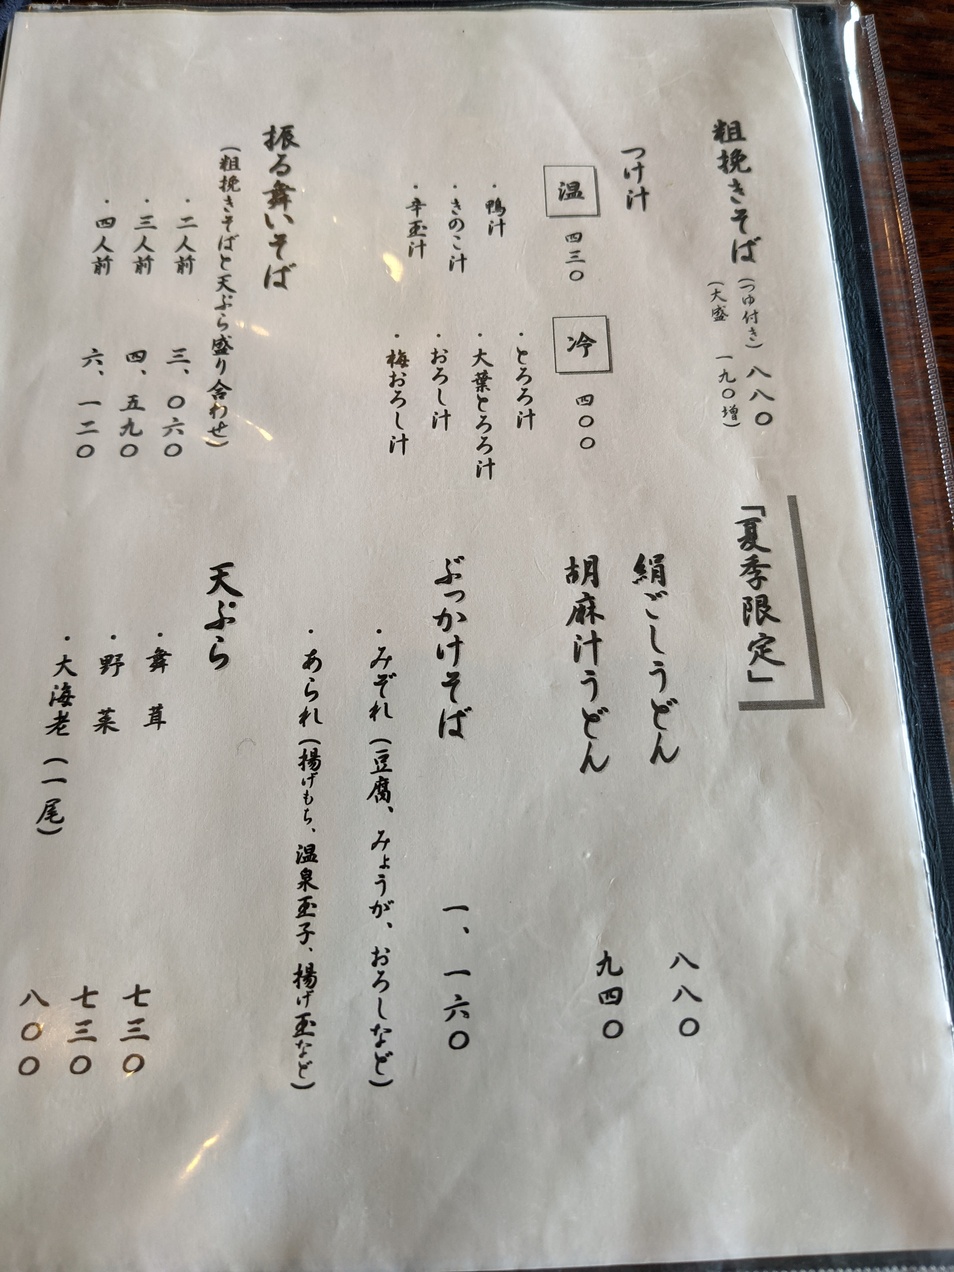 粗挽きそば(つゆ付き)八八〇
(大盛 一九〇増)
つけ汁
温 四三〇
・鴨汁
・きのこ汁
・辛玉汁
冷 四〇〇
・とろろ汁
・大葉とろろ汁
・おろし汁
・梅おろし汁
振る舞いそば
(粗挽きそばと天ぷら盛り合わせ)
・二人前 三、〇六〇
・三人前 四、五九〇
・四人前 六、一二〇
「夏季限定」
絹ごしうどん 八八〇
胡麻汁うどん 九四〇
ぶっかけそば 一、一六〇
・みぞれ(豆腐、みょうが、おろしなど)
・あられ(揚げもち、温泉玉子、揚げ玉など)
天ぷら
・舞茸 七三〇
・野菜 七三〇
・大海老(一尾) 八〇〇